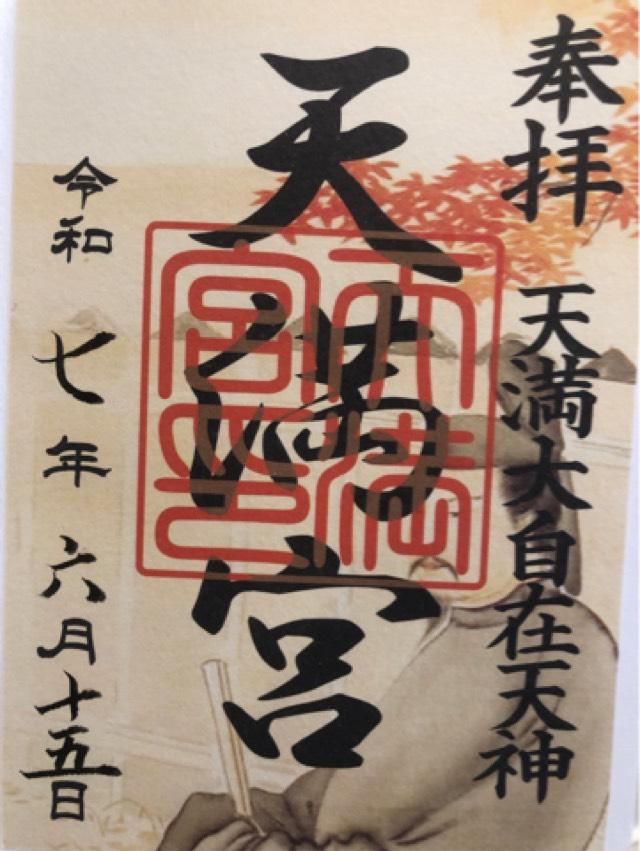 奉拝 天満大自在天神
天満宮
天満
宮印
令和七年六月十五日